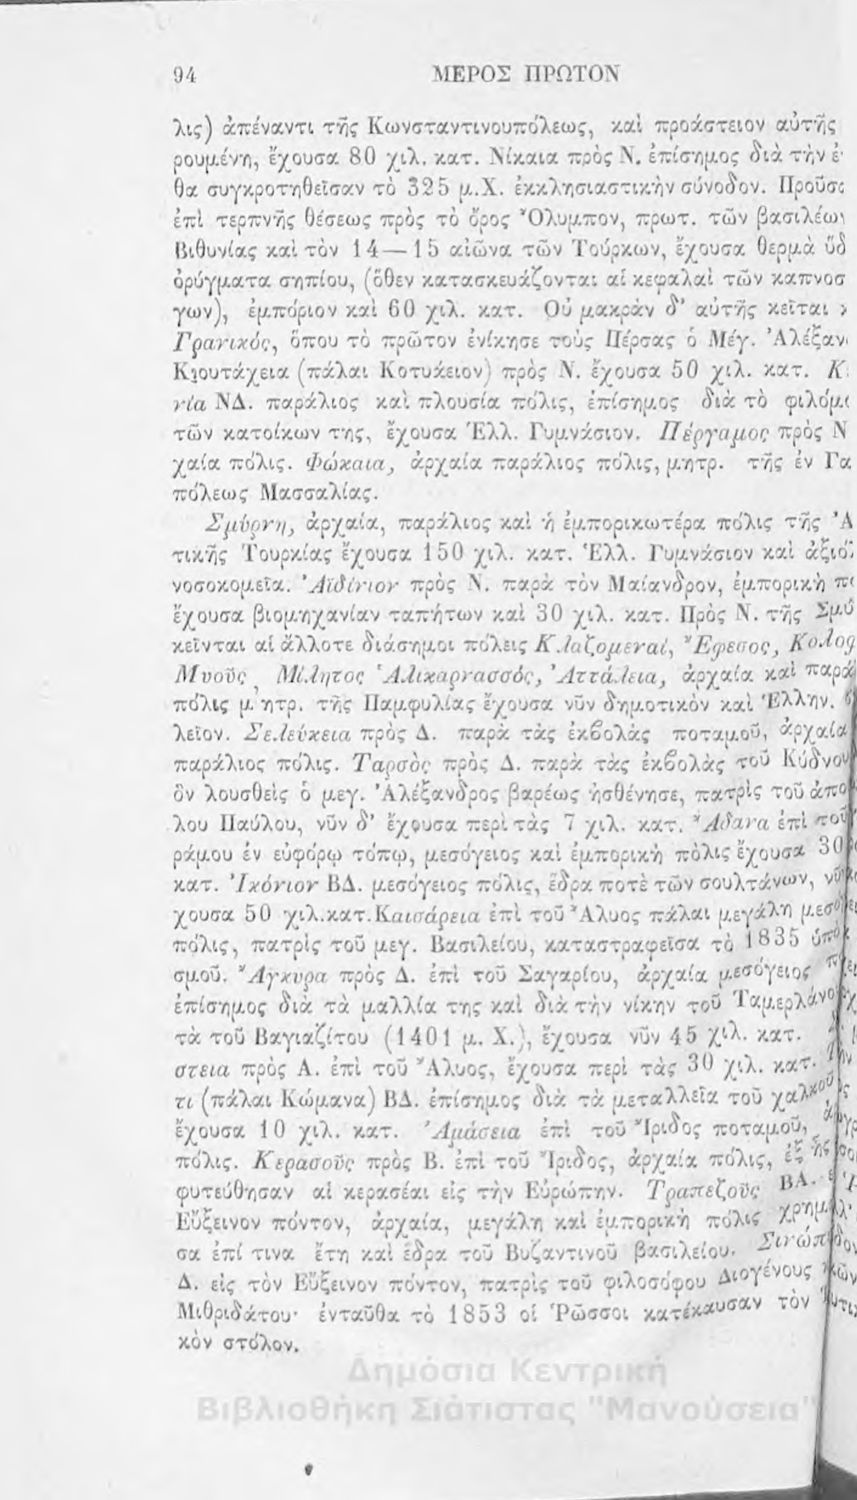 94 ΜΕΡΟΣ ΠΡΩΤΟΝ
λις) ἀπέναντι τῆς Κωνσταντινουπόλεως, καὶ προάστειον αὐτῆς
ρουμένη, ἔχουσα 80 χιλ. κατ. Νίκαια πρὸς Ν. ἐπίσημος διὰ τὴν ἐ
θα συγκροτηθεῖσαν τὸ 325 μ.Χ. ἐκκλησιαστικὴν σύνοδον. Προῦσ
ἐπὶ τερπνῆς θέσεως πρὸς τὸ ὄρος Ὄλυμπον, πρωτ. τῶν βασιλέω
Βιθυνίας καὶ τὸν 14—15 αἰῶνα τῶν Τούρκων, ἔχουσα θερμὰ ὕδ
ὀρύγματα σηπίου, (ὅθεν κατασκευάζονται αἱ κεφαλαὶ τῶν καπνοσ
γων), ἐμπόριον καὶ 60 χιλ. κατ. Οὐ μακρὰν δ' αὐτῆς κεῖται
Γρανικός, ὅπου τὸ πρῶτον ἐνίκησε τοὺς Πέρσας ὁ Μέγ. Ἀλέξαν
Κιουτάχεια (πάλαι Κοτυάειον) πρὸς Ν. ἔχουσα 50 χιλ. κατ. Κ
νία ΝΔ. παράλιος καὶ πλουσία πόλις, ἐπίσημος διὰ τὸ φιλόμ
τῶν κατοίκων της, ἔχουσα Ἑλλ. Γυμνάσιον. Πέργαμος πρὸς Ν
χαία πόλις. Φώκαια, ἀρχαία παράλιος πόλις, μητρ. τῆς ἐν Γα
πόλεως Μασσαλίας.
Σμύρνη, ἀρχαία, παράλιος καὶ ἡ ἐμπορικωτέρα πόλις τῆς Ἀ
τικῆς Τουρκίας ἔχουσα 150 χιλ. κατ. Ἑλλ. Γυμνάσιον καὶ ἀξιό
νοσοκομεῖα. Ἀϊδίνιον πρὸς Ν. παρὰ τὸν Μαίανδρον, ἐμπορικὴ π
ἔχουσα βιομηχανίαν ταπήτων καὶ 30 χιλ. κατ. Πρὸς Ν. τῆς Σμύ
κεῖνται αἱ ἄλλοτε διάσημοι πόλεις Κλαζομεναί, Ἔφεσος, Κολοφ
Μυοῦς Μίλητος Ἁλικαρνασσός, Ἀττάλεια, ἀρχαία καὶ παρά
πόλις μητρ. τῆς Παμφυλίας ἔχουσα νῦν δημοτικὸν καὶ Ἑλλην.
λεῖον. Σελεύκεια πρὸς Δ. παρὰ τὰς ἐκβολὰς ποταμοῦ, ἀρχαία
παράλιος πόλις. Ταρσὸς πρὸς Δ. παρὰ τὰς ἐκβολὰς τοῦ Κύδνου
ὃν λουσθεὶς ὁ μεγ. Ἀλέξανδρος βαρέως ἠσθένησε, πατρὶς τοῦ ἀπο
λου Παύλου, νῦν δ' ἔχουσα περὶ τὰς 7 χιλ. κατ. Ἄδανα ἐπὶ τοῦ
ράμου ἐν εὐφόρῳ τόπῳ, μεσόγειος καὶ ἐμπορικὴ πόλις ἔχουσα 30
κατ. Ἰκόνιον ΒΔ. μεσόγειος πόλις, ἕδρα ποτὲ τῶν σουλτάνων, νῦν
χουσα 50 χιλ.κατ.Καισάρεια ἐπὶ τοῦ Ἅλυος πάλαι μεγάλη μεσό
πόλις, πατρὶς τοῦ μεγ. Βασιλείου, καταστραφεῖσα τὸ 1835 ὑπὸ
σμοῦ. Ἄγκυρα πρὸς Δ. ἐπὶ τοῦ Σαγαρίου, ἀρχαία μεσόγειος π
ἐπίσημος διὰ τὰ μαλλία της καὶ διὰ τὴν νίκην τοῦ Ταμερλάνο
τὰ τοῦ Βαγιαζίτου (1401 μ. Χ.), ἔχουσα νῦν 45 χιλ. κατ.
στεια πρὸς Α. ἐπὶ τοῦ Ἅλυος, ἔχουσα περὶ τὰς 30 χιλ. κατ.
τι (πάλαι Κώμανα) ΒΔ. ἐπίσημος διὰ τὰ μεταλλεῖα τοῦ χαλκοῦ,
ἔχουσα 10 χιλ. κατ. Ἀμάσεια ἐπὶ τοῦ Ἴριδος ποταμοῦ, ἀ
πόλις. Κερασοῦς πρὸς Β. ἐπὶ τοῦ Ἴριδος, ἀρχαία πόλις, ἐξ ἧς
φυτεύθησαν αἱ κερασέαι εἰς τὴν Εὐρώπην. Τραπεζοῦς ΒΑ. ἐ
Εὔξεινον πόντον, ἀρχαία, μεγάλη καὶ ἐμπορικὴ πόλις χρημ
σα ἐπί τινα ἔτη καὶ ἕδρα τοῦ Βυζαντινοῦ βασιλείου. Σινώπ
Δ. εἰς τὸν Εὔξεινον πόντον, πατρὶς τοῦ φιλοσόφου Διογένους
Μιθριδάτου· ἐνταῦθα τὸ 1853 οἱ Ῥῶσσοι κατέκαυσαν τὸν
κὸν στόλον.
Δημόσια Κεντρική
Βιβλιοθήκη Σιάτιστας "Μανούσεια"